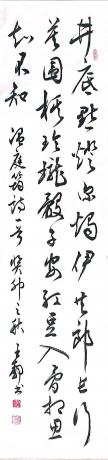 井底點燈深燭伊共郎長行
莫圍棋玲瓏骰子安紅豆入骨相思
知不知 溫庭筠詩一首 癸卯之秋 王 書